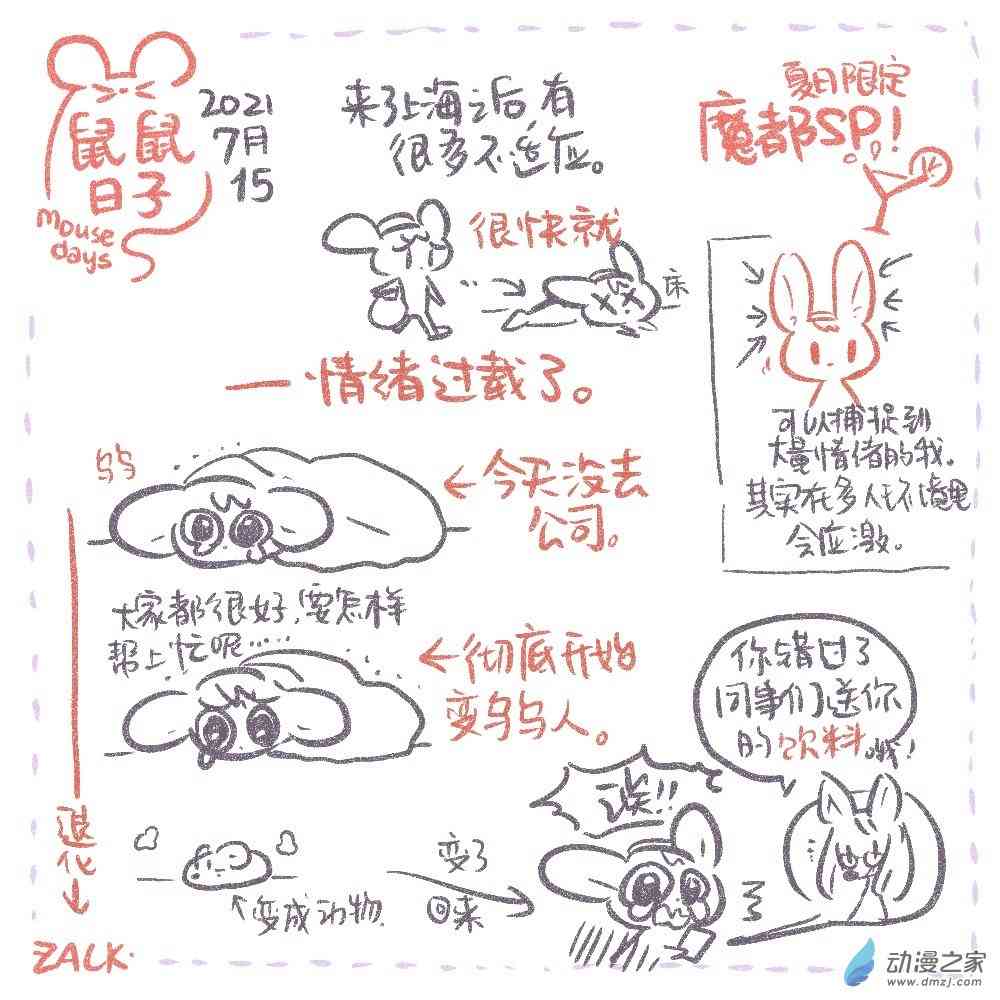 鼠鼠
日子
mouse
days
2021
7月
15
来了上海之后,有
很多不适应。
夏日限定
魔都SP!
很快就
床
一情绪过载了。
可以捕捉到
大量情绪的我。
其实在多人环境里
会应激。
呜呜
←今天没去
公司。
大家都很好,要怎样
帮上忙呢……
←彻底开始
变呜呜人。
退化↓
变成动物
变了
回来
诶!!
你错过了
同事们送你
的饮料哦!
ZALK.
动漫之家
www.dmzj.com